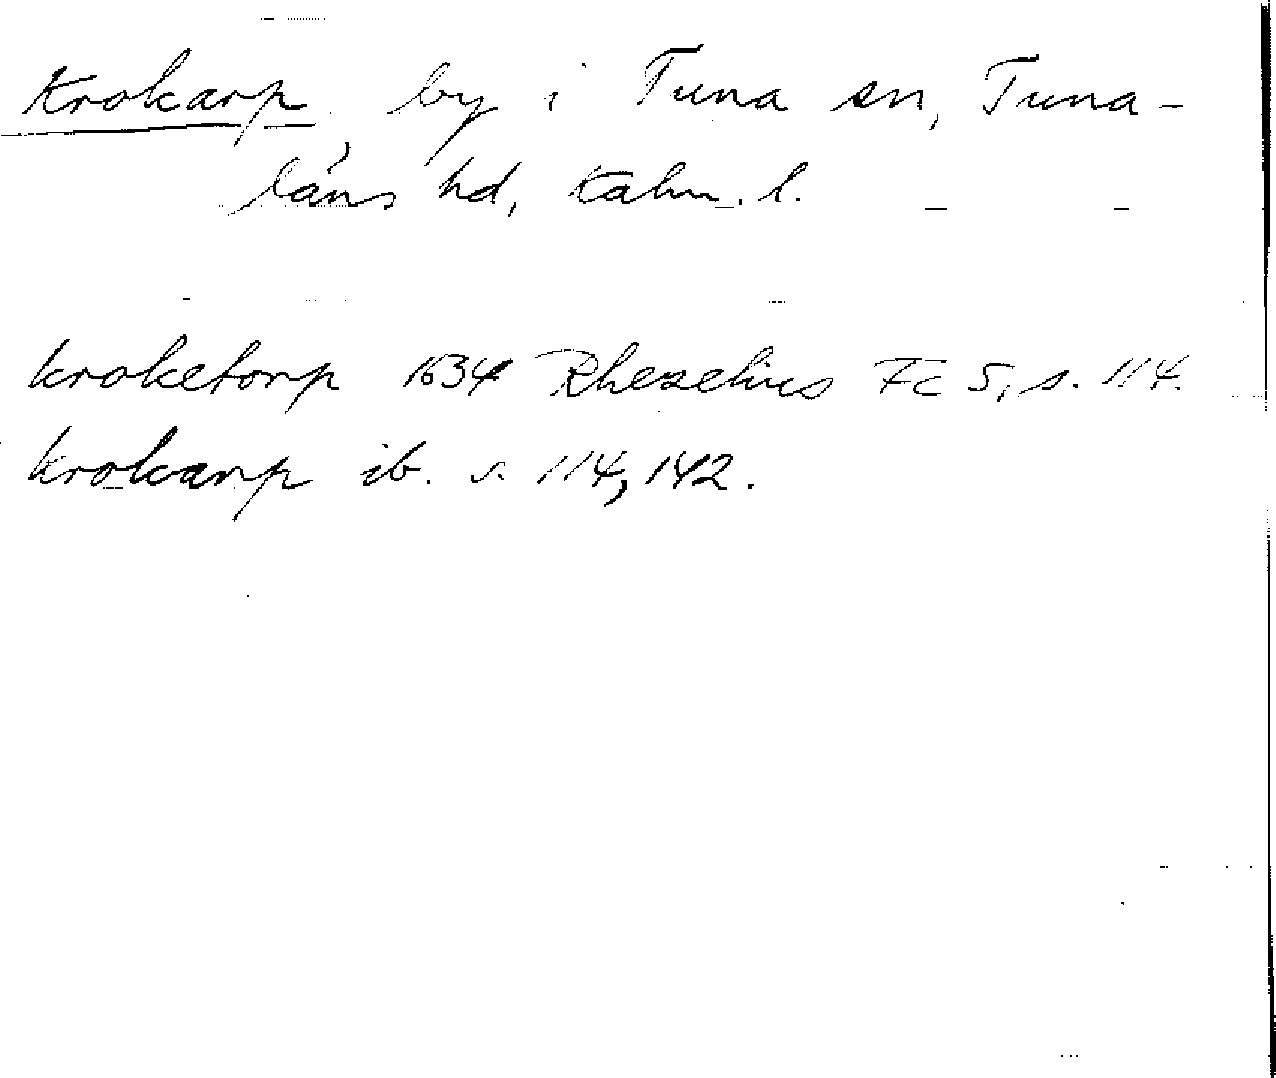 Krokarp, by i Tuna sn, Tuna-
läns hd, Kalm. l.
Kroketorp 1634 Rhezelius Fc 5, s. 114.
Krokarp ib. s. 114, 142.